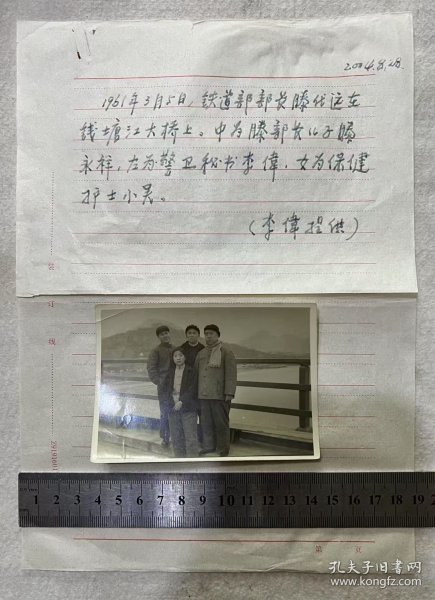 2004.8.28.
1961年3月5日，铁道部部长滕代远在
钱塘江大桥上。中为滕部长儿子滕
永梓，左为警卫秘书李偉，女为保健
护士小吴。
（李偉提供）
装
订
线
1 2 3 4 5 6 7 8 9 10 11 12 13 14 15 16 17 18 19
第 页
孔夫子旧书网
www.kongfz.com